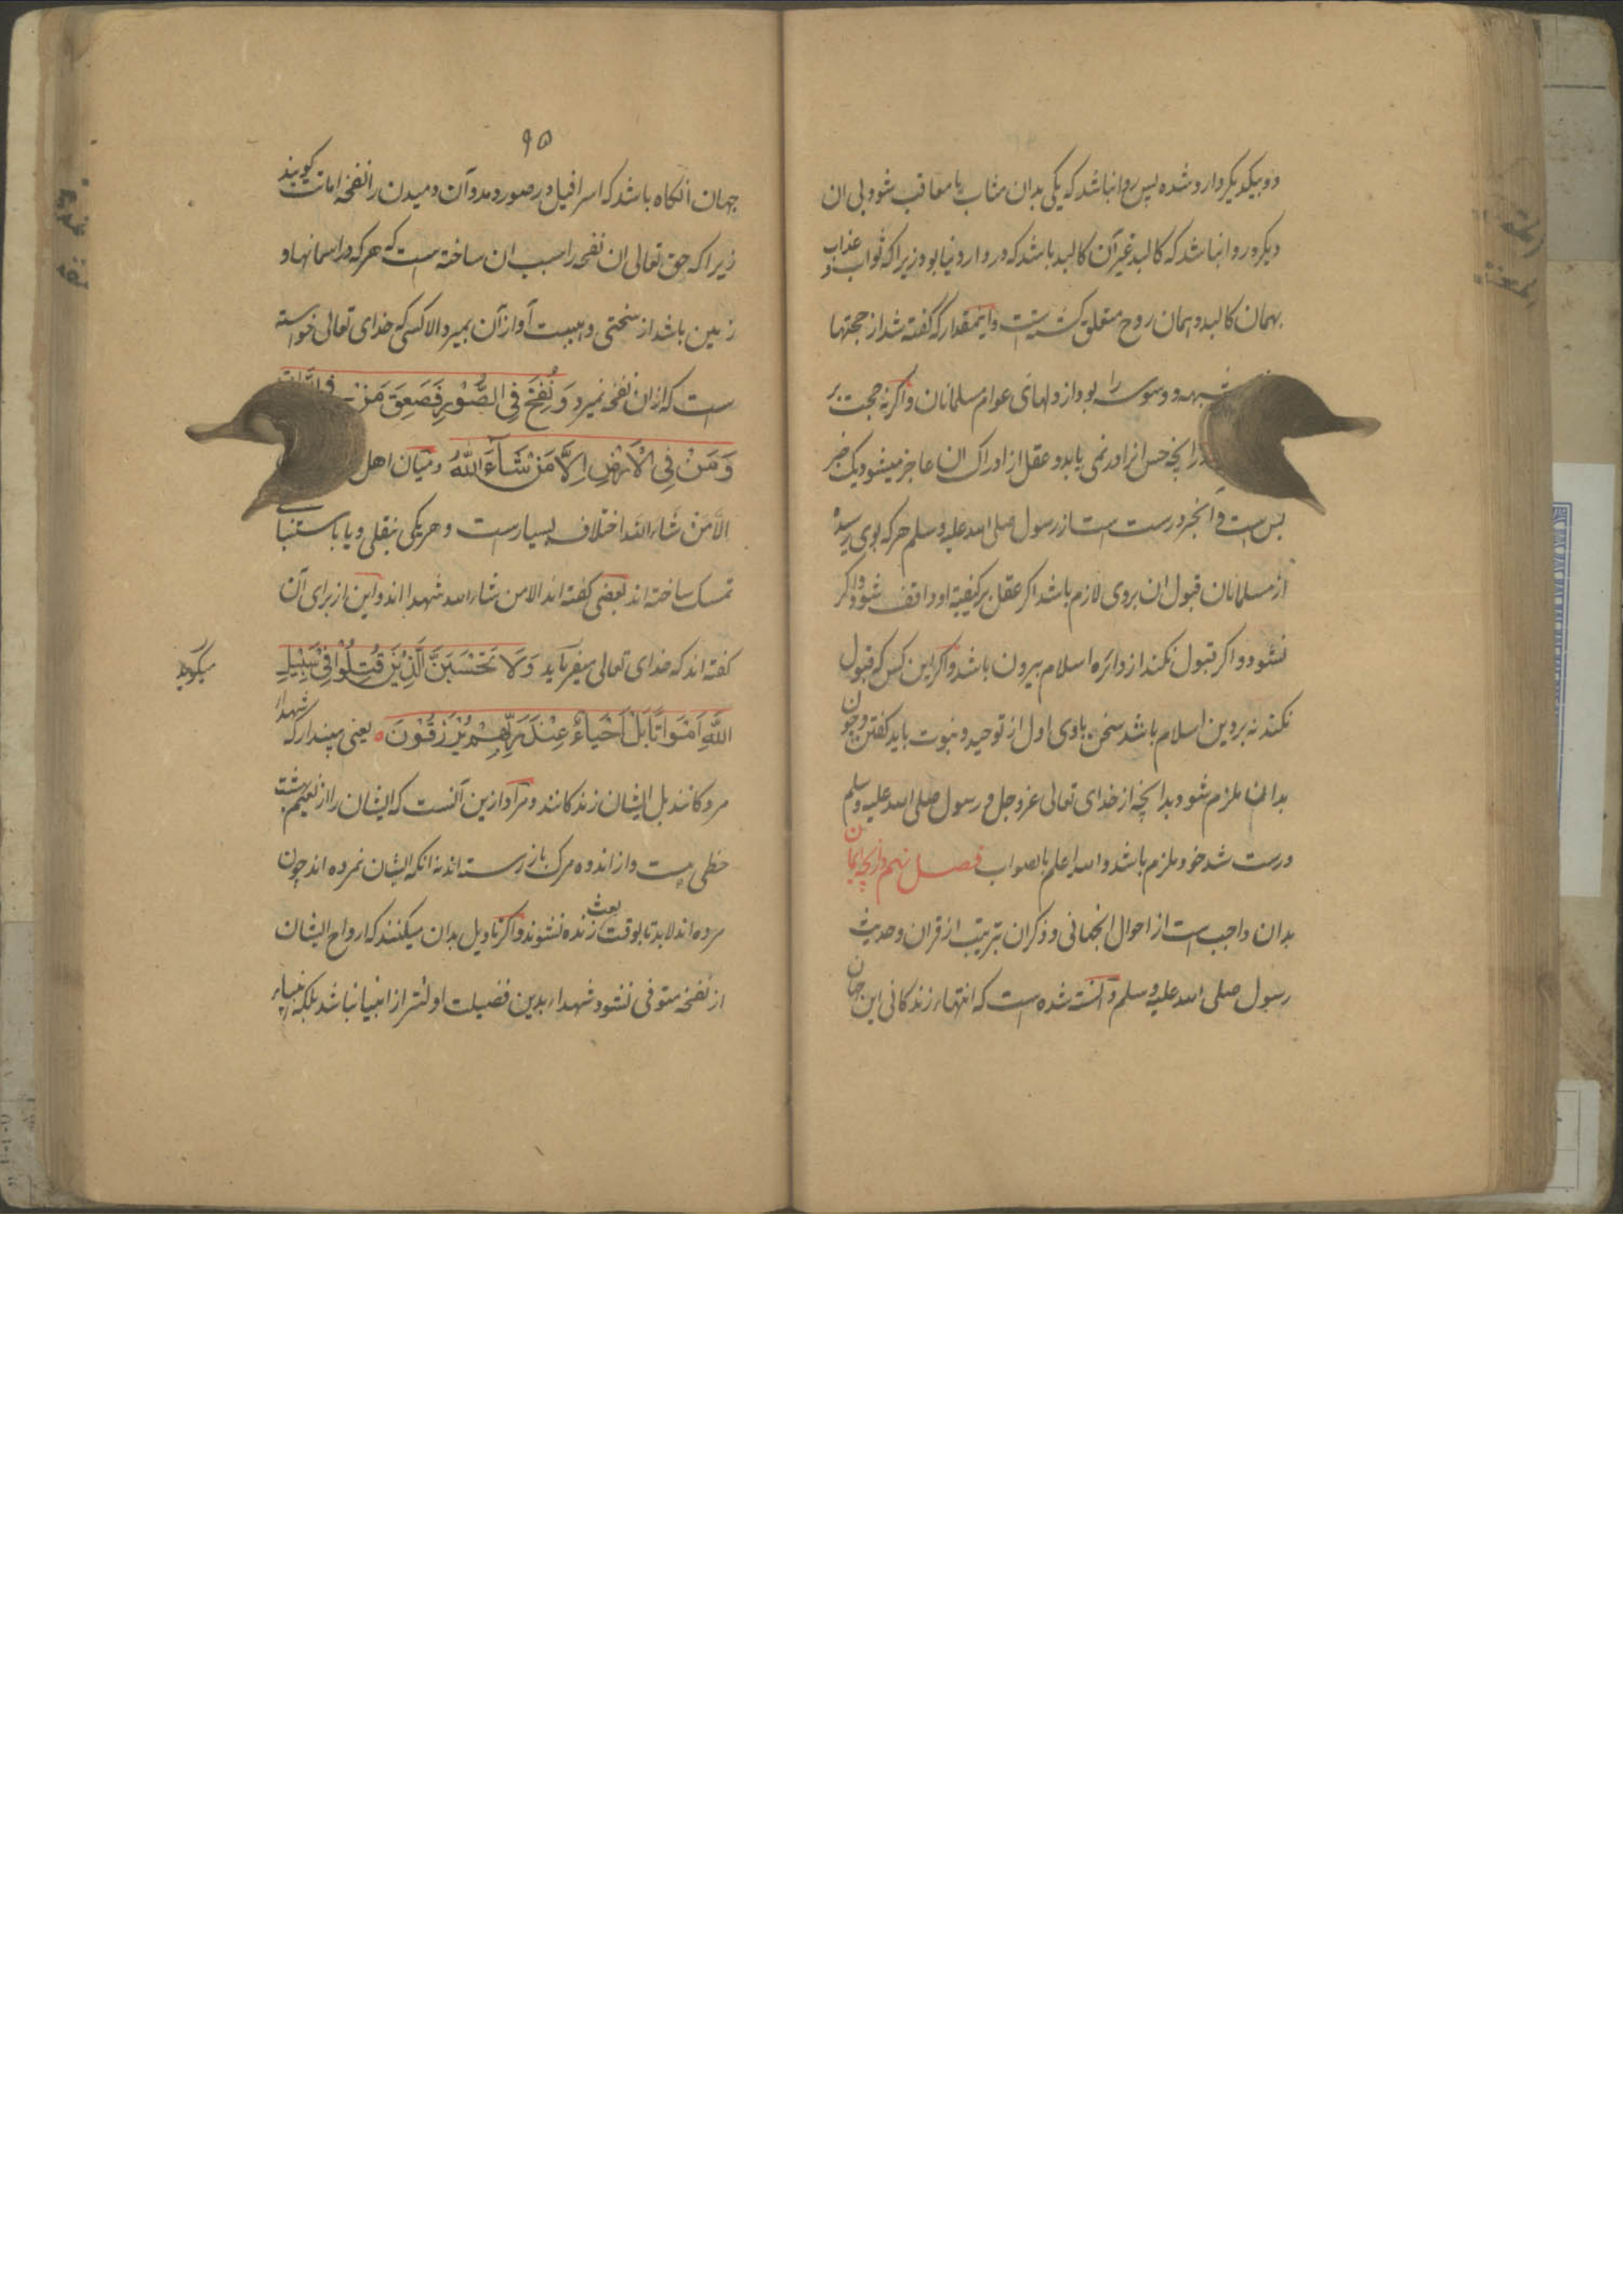 دو بیکدیکر وارد شده پس روا نباشد که یکی بدان مثاب یا معاقب شود بی ان
دیکر و روا نباشد که کالبد غیر آن کالبد باشد که در دار دنیا بود زیرا که ثواب و عذاب
بهمان کالبد و همان روح متعلق کشتست و اینمقدار که گفته شد از حجتها
شبهه و وسوسه را بود از دلهای عوام مسلمانان و اکرنه حجت بر
در انچه حس انرا در نمی یابد و عقل از ادراک ان عاجز میشود یک خبر
بس است و انخبر درست است از رسول صلی الله علیه و سلم هر که بوی رسید
از مسلمانان قبول ان بروی لازم باشد اکر عقل بر کیفیة او واقف شود و اکر
نشود و اکر قبول نکند از دائره اسلام بیرون باشد و اکر این کس که قبول
نکند نه بر دین اسلام باشد سخن باوی اول از توحید و نبوت باید کفتن و چون
بدانها ملزم شود بدانچه از خدای تعالی عز و جل و رسول صلی الله علیه و سلم
درست شد خود ملزم باشد والله اعلم بالصواب فصل نهم در انچه ایمان
بدان واجب است از احوال انجهانی و ذکر ان بترتیب از قران و حدیث
رسول صلی الله علیه و سلم دانسته شده است که انتهاء زندکانی این جهان
٩٥
جهان انکاه باشد که اسرافیل در صور دمد و آن دمیدن را نفخه اماتت کویند
زیرا که حق تعالی ان نفخه را سبب ان ساخته است که هر که در اسمانها و
زمین باشد از سختی و هیبت آواز آن بمیرد الا کسی که خدای تعالی خواسته
ست که از ان نفخه نمیرد وَ نُفِخَ فِی الصُّوْرِ فَصَعِقَ مَنْ فی السَّمٰوَات
وَ مَنْ فِی الْاَرْضِ اِلَّا مَنْ شَآءَ اللّٰهُ و میان اهل
الاَّ مَنْ شَاء الله اختلاف بسیارست و هر یکی بنقلی و یا باستنباطی
تمسک ساخته اند بعضی کفته اند الا من شاء الله شهدا اند و این از برای آن
کفته اند که خدای تعالی میفرماید وَلَا تَحْسَبَنَّ الَّذِیْنَ قُتِلُوْا فِیْ سَبِیْلِ
میکوید
اللّٰهِ اَمْوَاتًا بَلْ اَحْیَاءٌ عِنْدَ رَبِّهِمْ یُرْزَقُوْنَ ه یعنی مپندار که شهدا
مردکانند بل ایشان زندکانند و مراد ازین آنست که ایشان را از نعیم بهشت
حظی هست و از اندوه مرک باز رسته اند نه انکه ایشان نمرده اند چون
مرده اند لابد تا بوقت بعث زنده نشوند و اکر تاویل بدان میکنند که ارواح ایشان
از نفخه متوفی نشود شهداء بدین فضیلت اولیتر از انبیا نباشد بلکه انبیاء